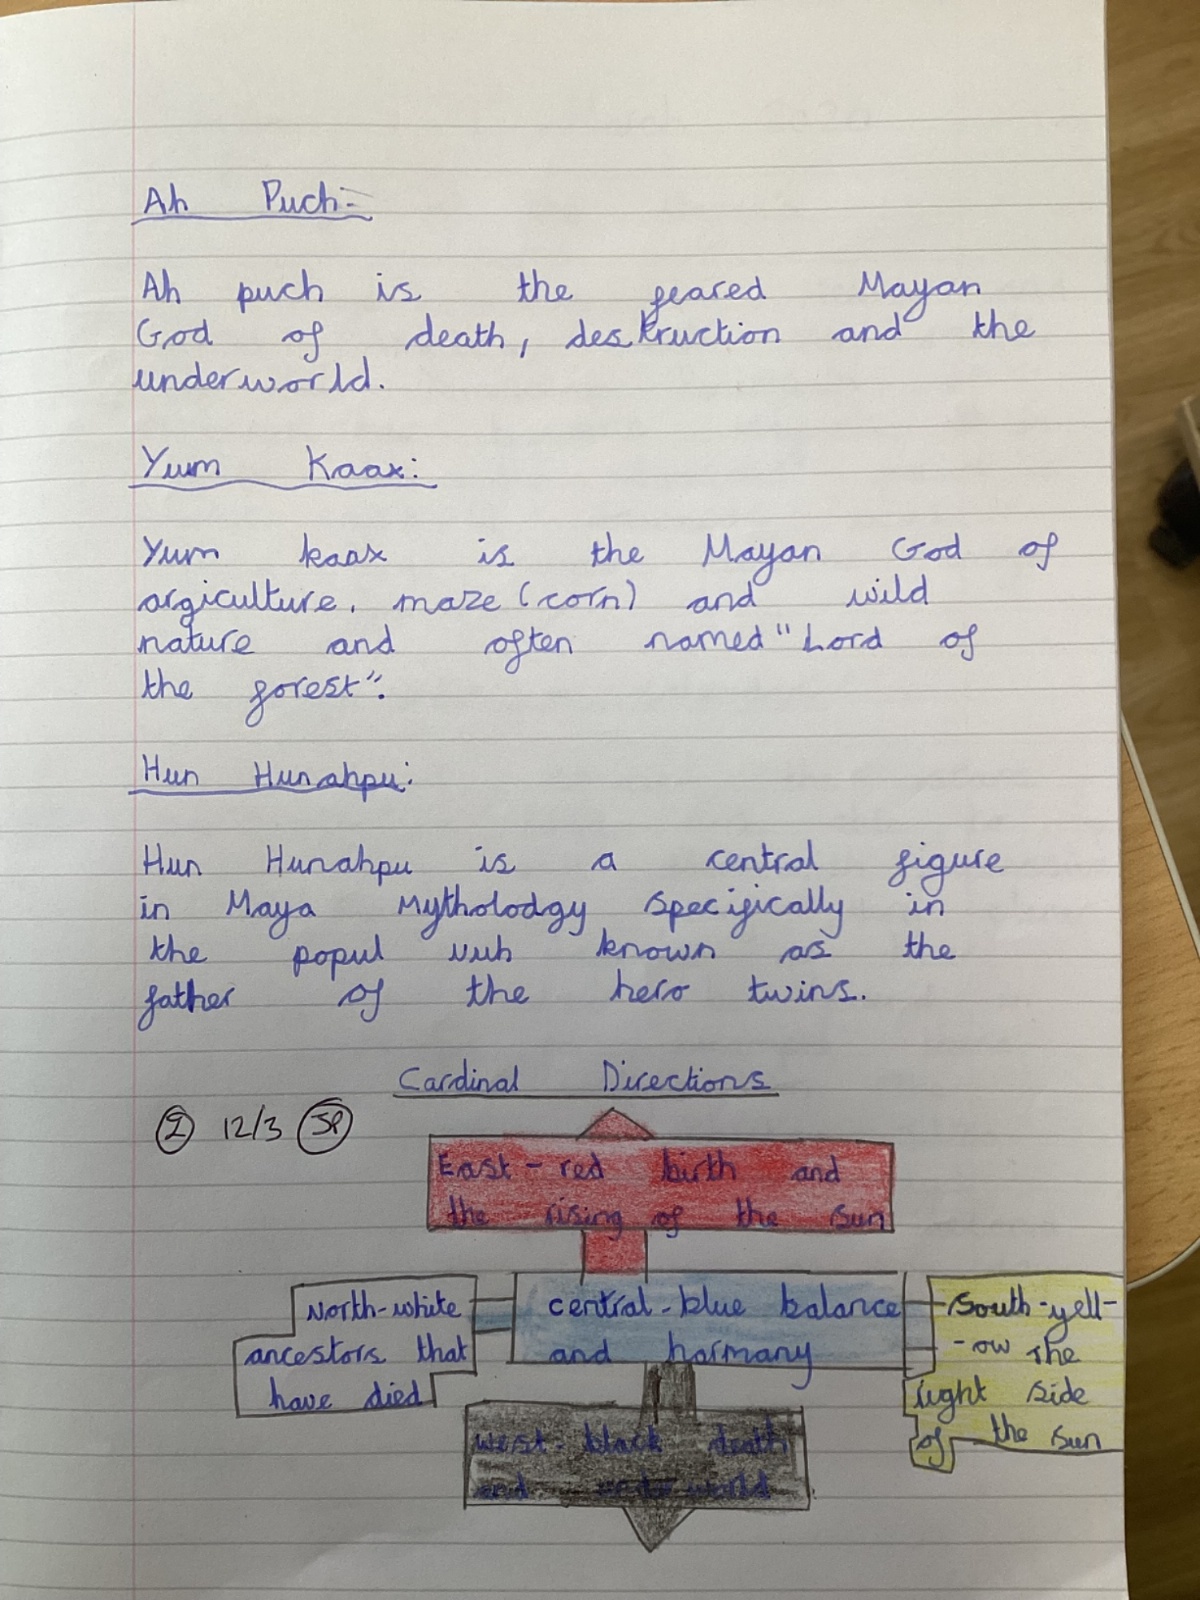 Ah Puch:-
Ah puch is the feared Mayan
God of death, destruction and the
underworld.
Yum Kaax:
Yum kaax is the Mayan God of
argiculture, maze (corn) and wild
nature and often named "Lord of
the forest".
Hun Hunahpu:
Hun Hunahpu is a central figure
in Maya Mytholodgy specifically in
the popul vuh known as the
father of the hero twins.
Cardinal Directions
12/3
East - red birth and
the rising of the sun
North-white
ancestors that
have died
central - blue balance
and harmany
South-yell-
-ow The
right side
of the sun
West - black death
and world